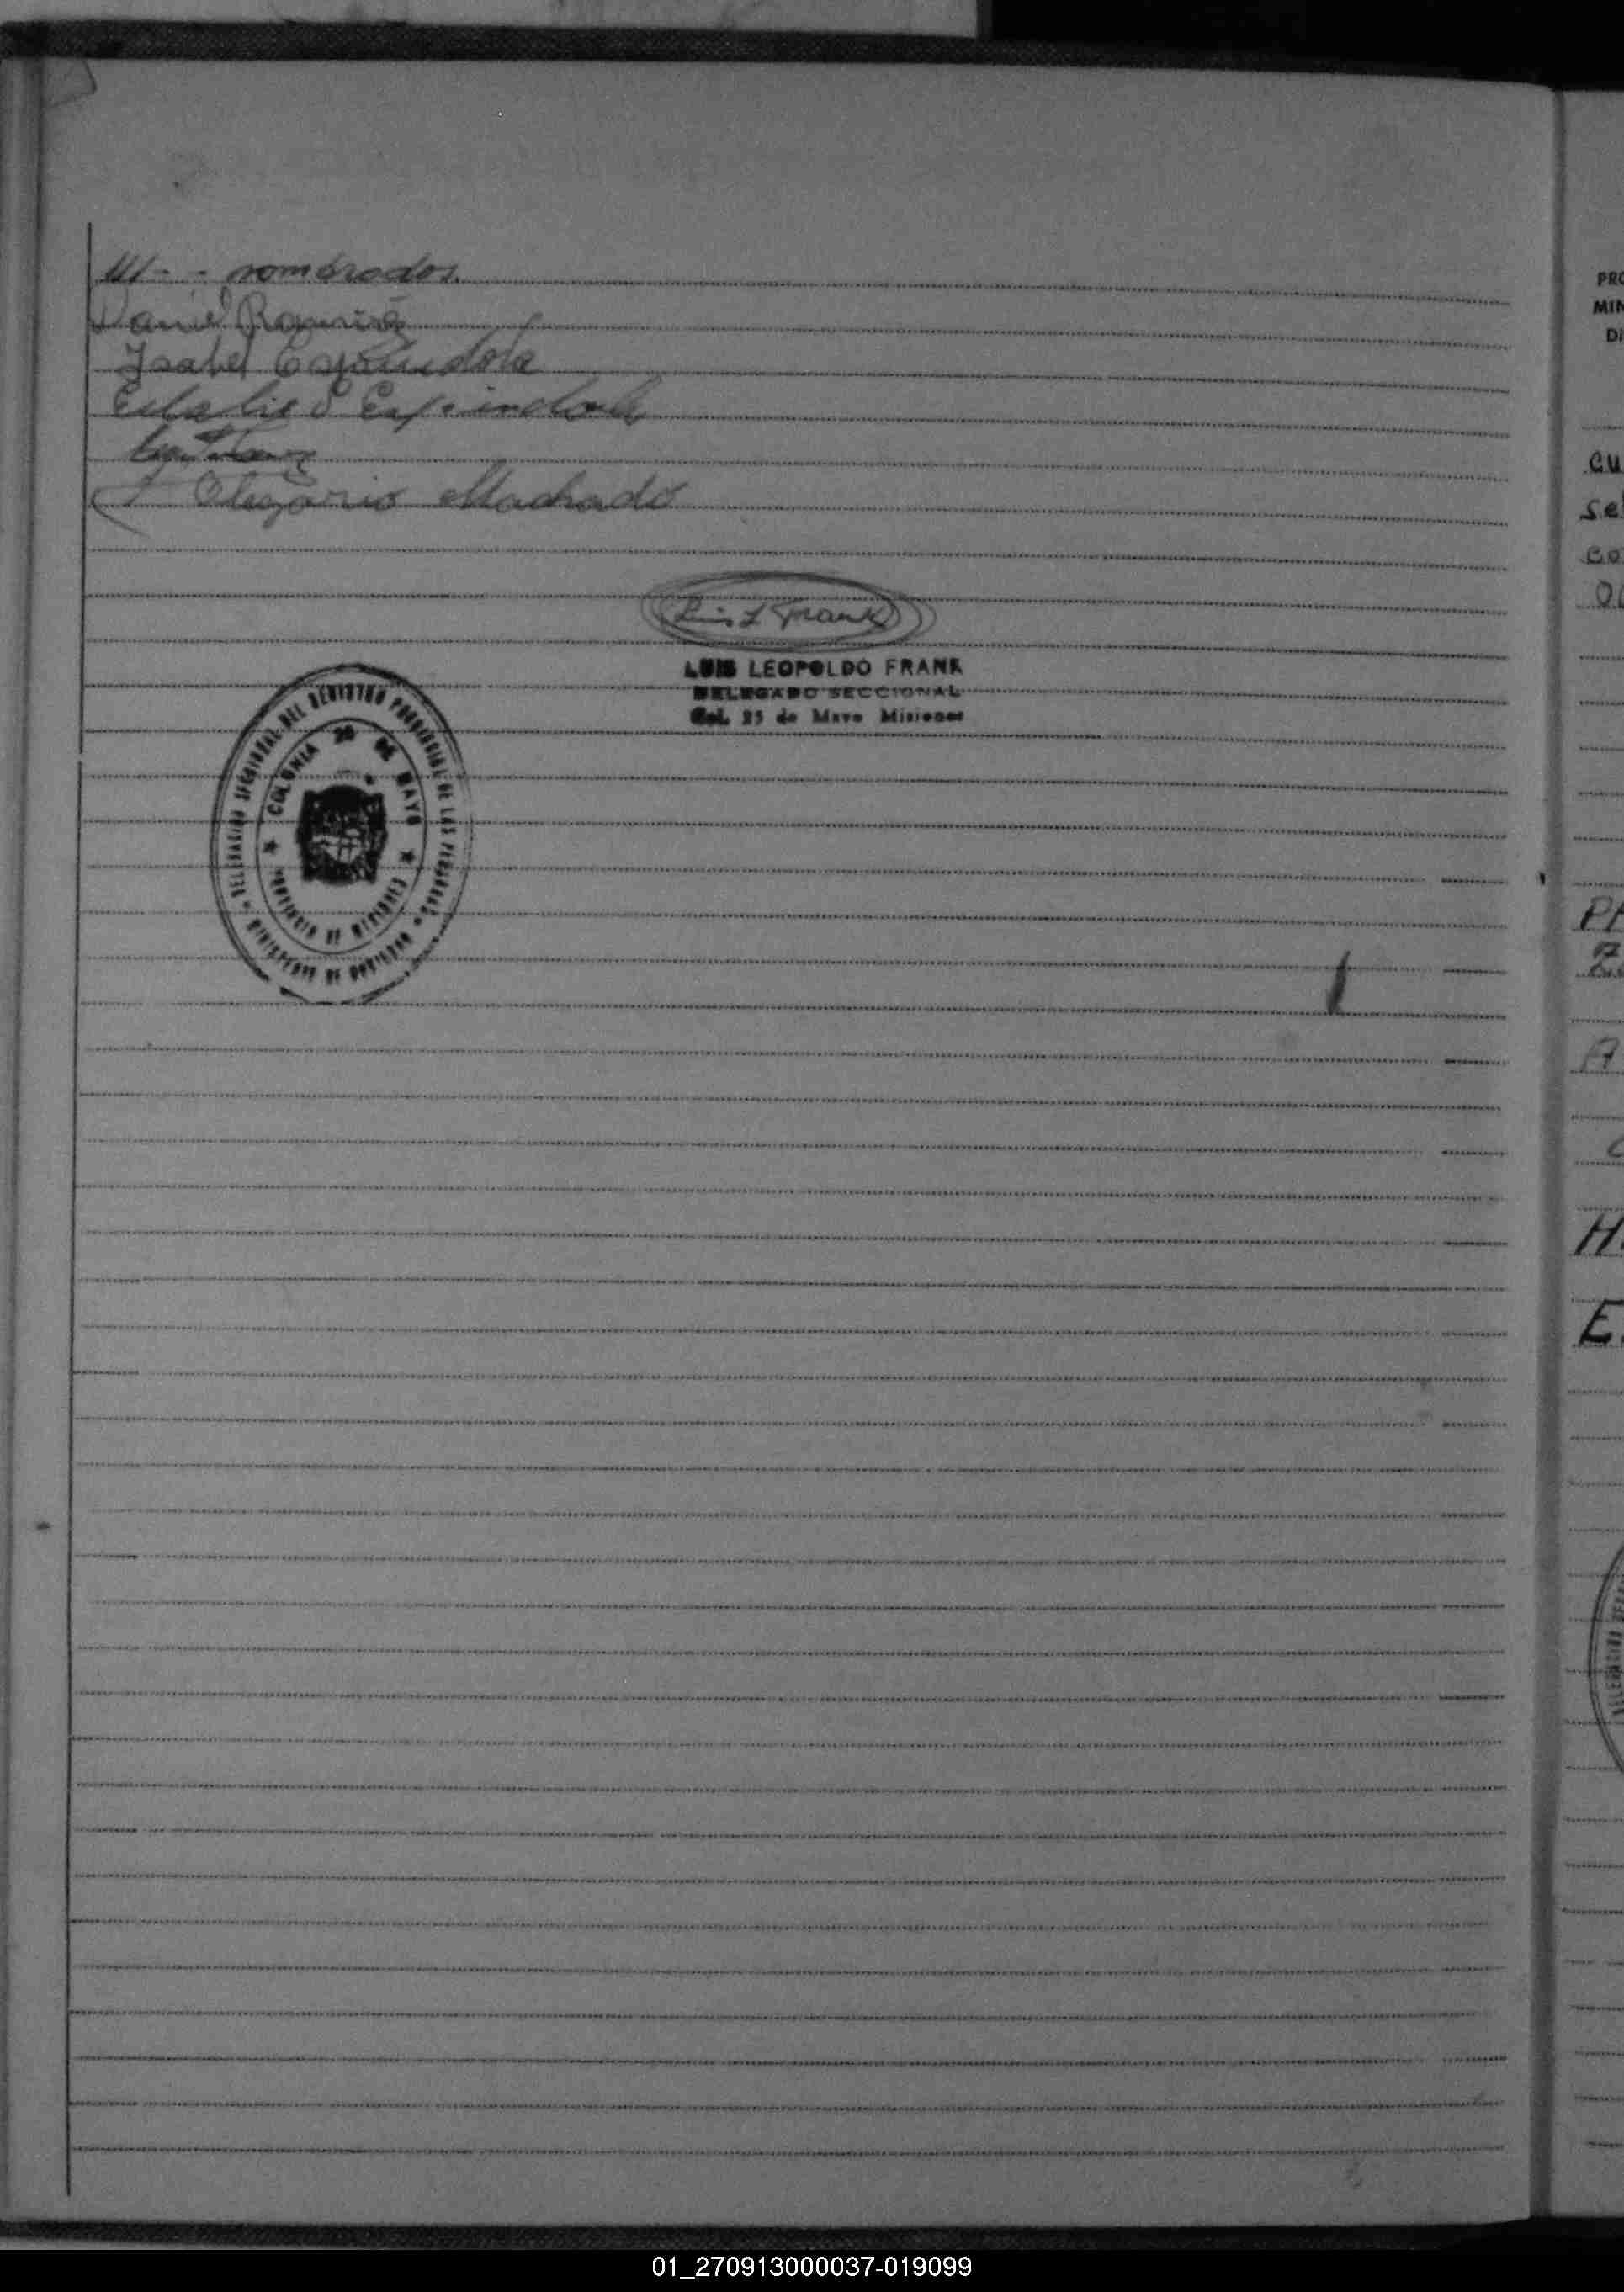 ///- - nombrados.
Daniel
Isabel Espindola
Espindola
Olegario Machado
Luis L Frank
LUIS LEOPOLDO FRANK
DELEGADO SECCIONAL
Col. 25 de Mayo Misiones
DELEGACION SECCIONAL DEL REGISTRO PROVINCIAL DE LAS PERSONAS
MINISTERIO DE GOBIERNO
COLONIA 25 DE MAYO
PROVINCIA DE MISIONES
PRO
MIN
DI
CU
Se
CO
PA
A
H
E
01_270913000037-019099